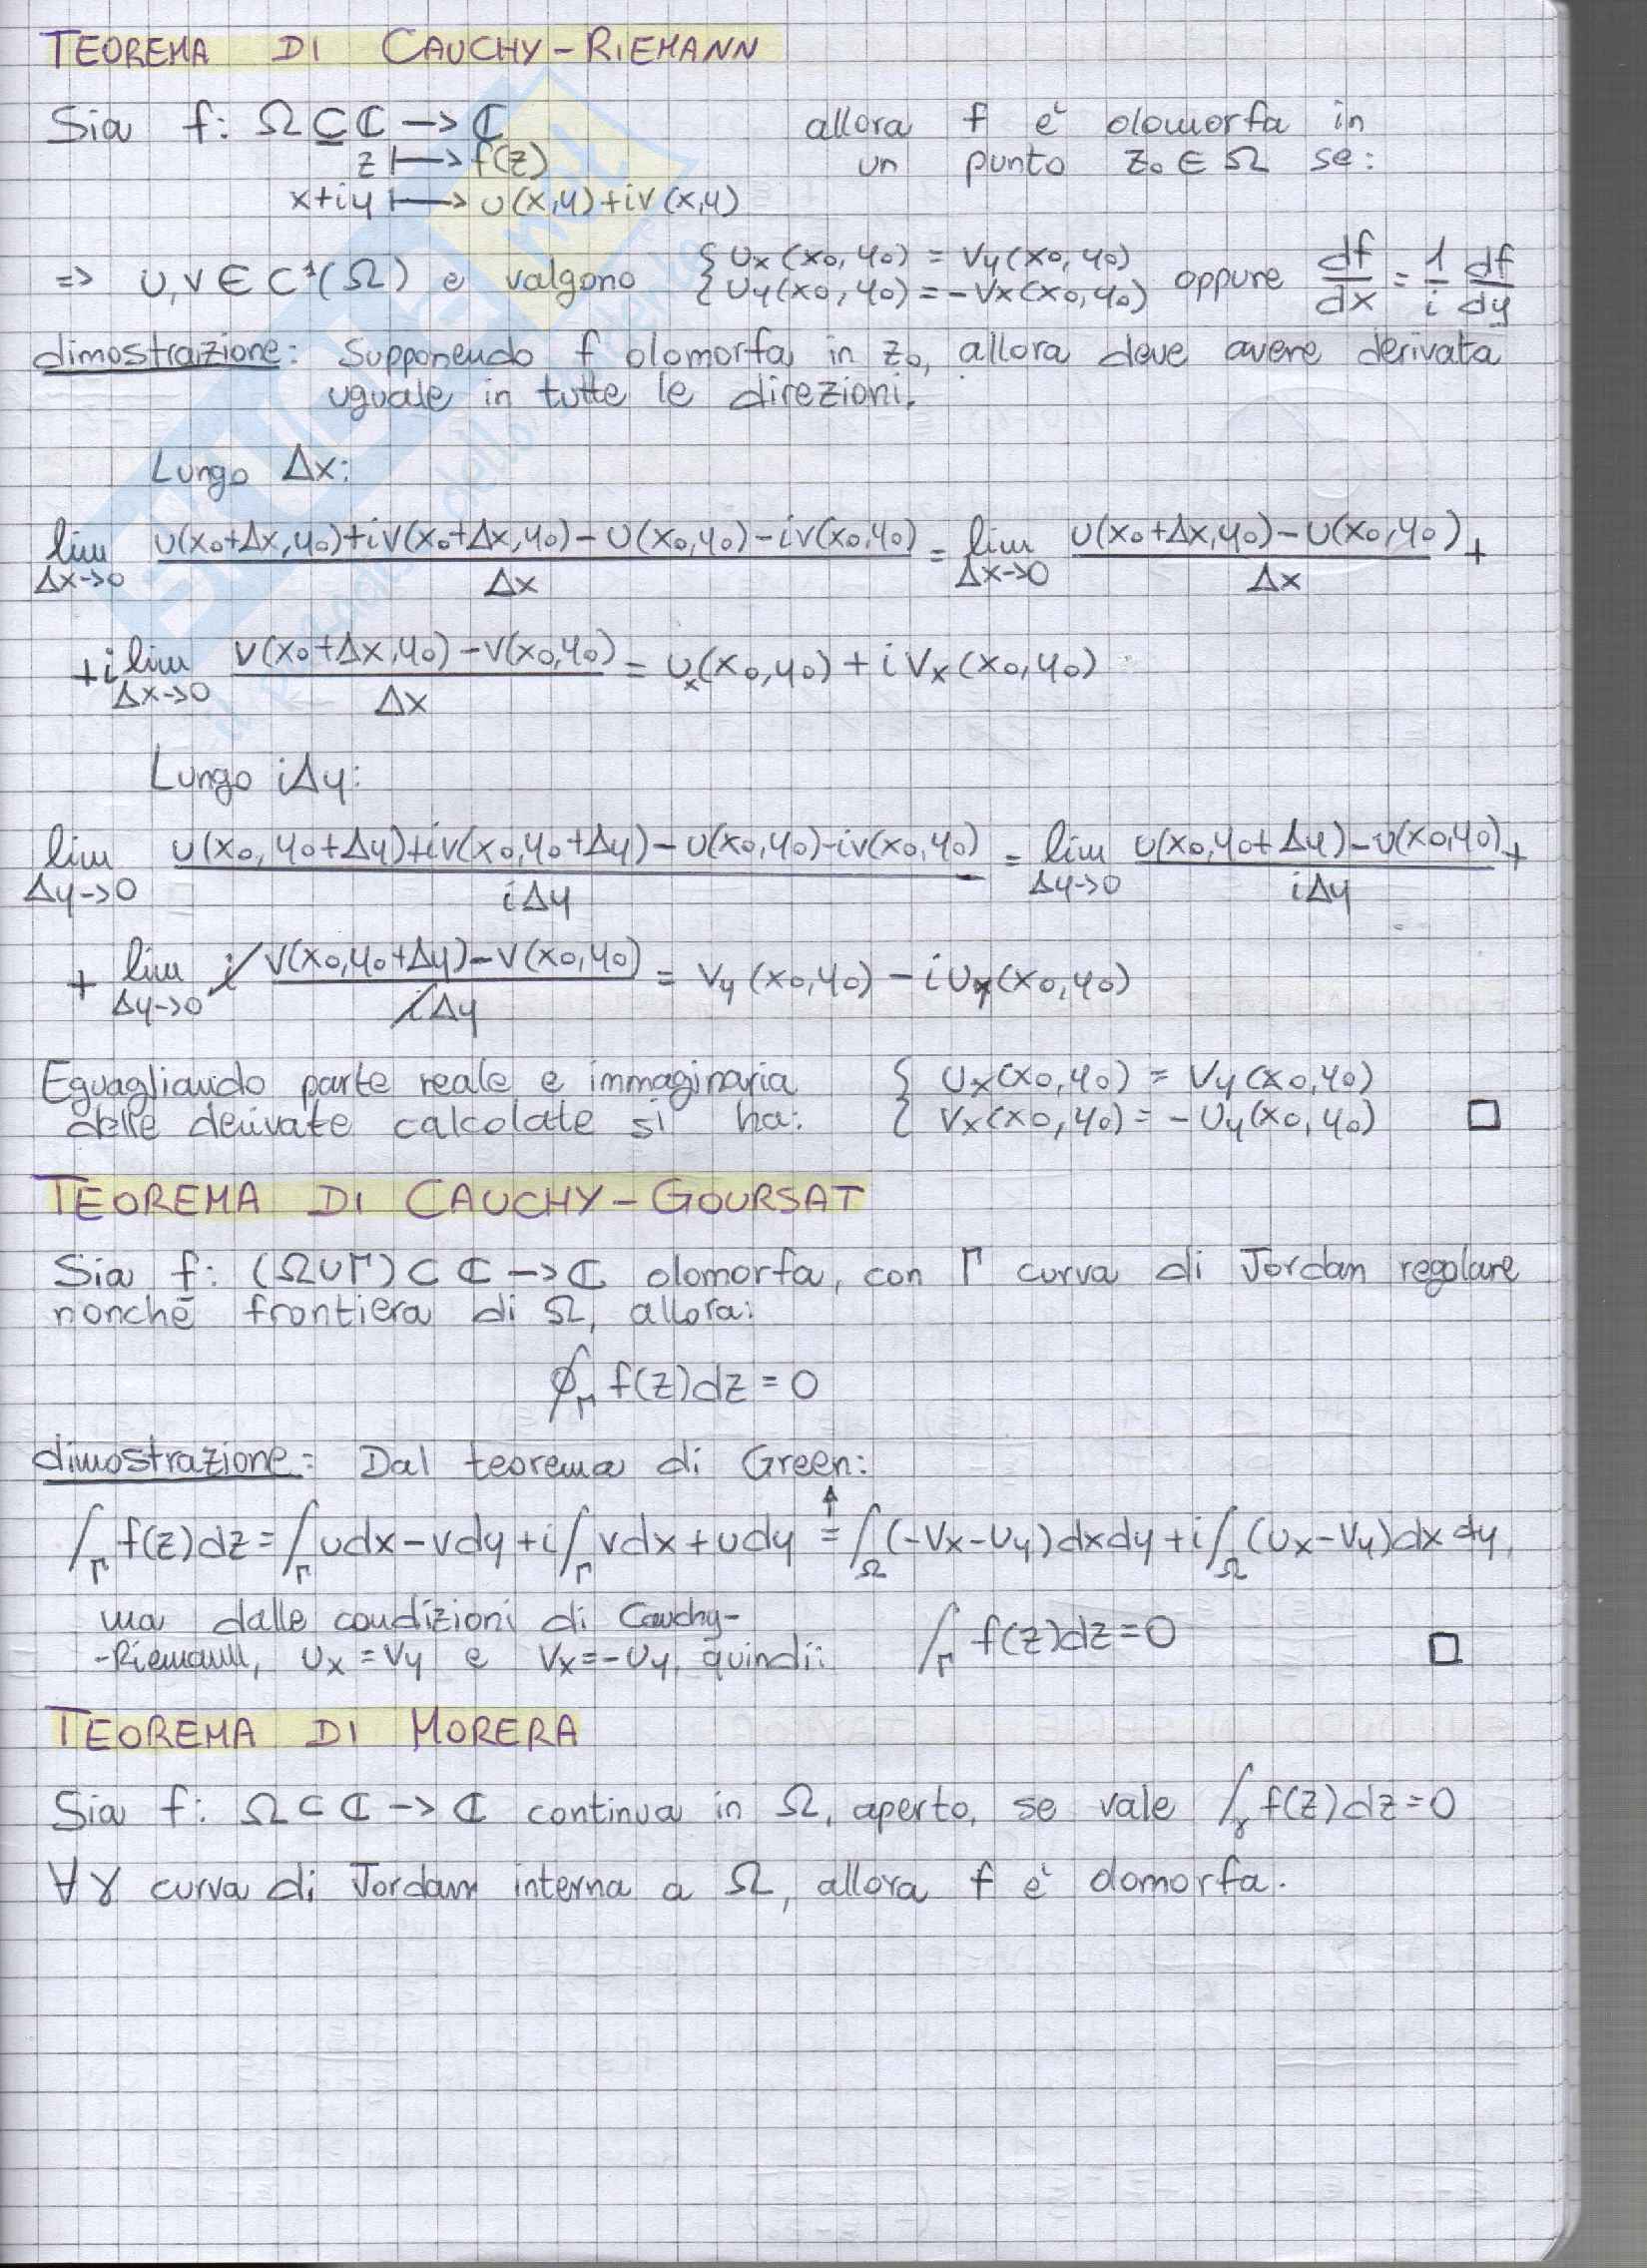 TEOREMA DI CAUCHY-RIEMANN
Sia f: Ω ⊆ ℂ → ℂ allora f è olomorfa in
z ↦ f(z) un punto z₀ ∈ Ω se:
x+iy ↦ u(x,y)+iv(x,y)
⇒ u,v ∈ C¹(Ω) e valgono { uₓ(x₀,y₀) = v_y(x₀,y₀) oppure df/dx = 1/i df/dy
{ u_y(x₀,y₀) = -vₓ(x₀,y₀)
dimostrazione: Supponendo f olomorfa in z₀, allora deve avere derivata
uguale in tutte le direzioni.
Lungo Δx:
lim_{Δx→0} (u(x₀+Δx,y₀)+iv(x₀+Δx,y₀)-u(x₀,y₀)-iv(x₀,y₀))/Δx = lim_{Δx→0} (u(x₀+Δx,y₀)-u(x₀,y₀))/Δx +
+i lim_{Δx→0} (v(x₀+Δx,y₀)-v(x₀,y₀))/Δx = uₓ(x₀,y₀)+ivₓ(x₀,y₀)
Lungo iΔy:
lim_{Δy→0} (u(x₀,y₀+Δy)+iv(x₀,y₀+Δy)-u(x₀,y₀)-iv(x₀,y₀))/iΔy = lim_{Δy→0} (u(x₀,y₀+Δy)-u(x₀,y₀))/iΔy +
+ lim_{Δy→0} i (v(x₀,y₀+Δy)-v(x₀,y₀))/iΔy = v_y(x₀,y₀) - iu_y(x₀,y₀)
Eguagliando parte reale e immaginaria { uₓ(x₀,y₀) = v_y(x₀,y₀)
delle derivate calcolate si ha: { vₓ(x₀,y₀) = -u_y(x₀,y₀) □
TEOREMA DI CAUCHY-GOURSAT
Sia f: (Ω∪Γ) ⊂ ℂ → ℂ olomorfa, con Γ curva di Jordan regolare
nonché frontiera di Ω, allora:
∮_Γ f(z)dz = 0
dimostrazione: Dal teorema di Green:
∫_Γ f(z)dz = ∫_Γ udx-vdy+i∫_Γ vdx+udy = ∫_Ω (-vₓ-u_y)dxdy+i∫_Ω (uₓ-v_y)dxdy,
ma dalle condizioni di Cauchy-
-Riemann, uₓ=v_y e vₓ=-u_y, quindi: ∫_Γ f(z)dz=0 □
TEOREMA DI MORERA
Sia f: Ω ⊂ ℂ → ℂ continua in Ω, aperto, se vale ∫_γ f(z)dz=0
∀γ curva di Jordan interna a Ω, allora f è olomorfa.